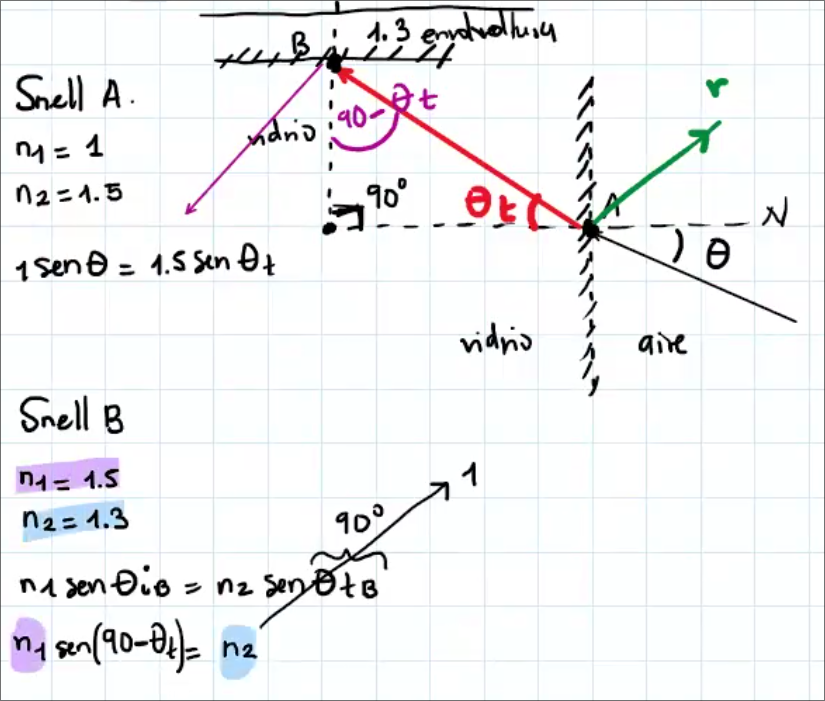 B 1.3 envoltura
Snell A.
n1 = 1
n2 = 1.5
1 sen θ = 1.5 sen θt
vidrio
90-θt
90°
θt
A
r
N
θ
vidrio
aire
Snell B
n1 = 1.5
n2 = 1.3
90°
1
n1 sen θiB = n2 sen θtB
n1 sen(90-θt) = n2